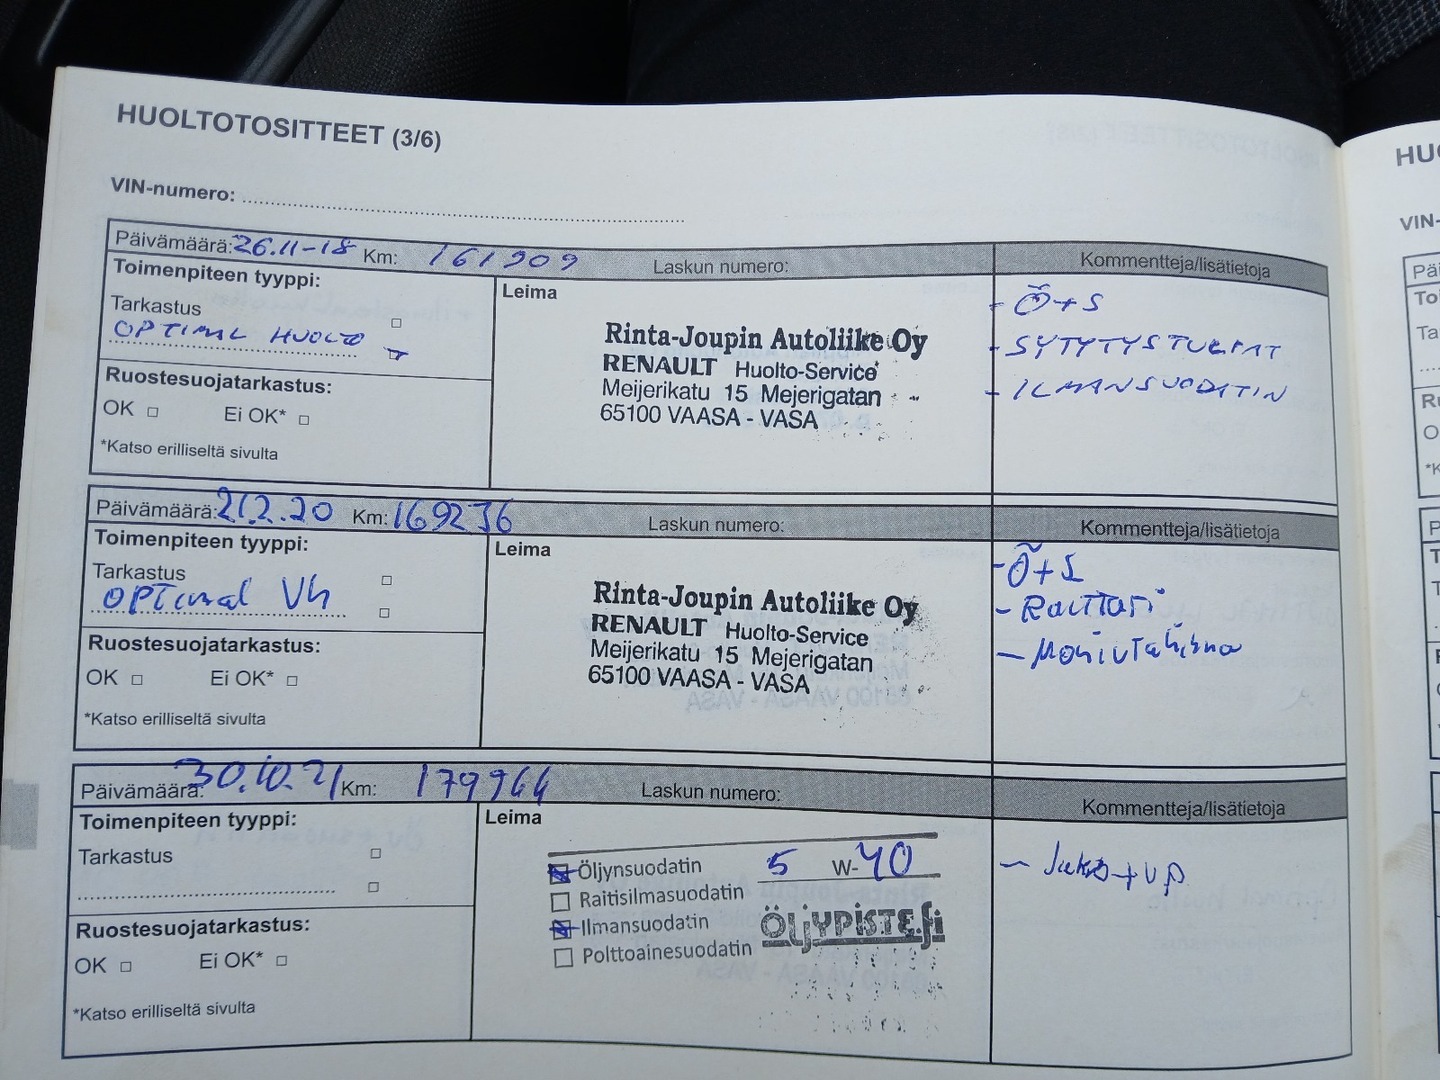 HUOLTOTOSITTEET (3/6)
VIN-numero:
Päivämäärä: 26.11-18 Km: 161909 Laskun numero: Kommentteja/lisätietoja
Toimenpiteen tyyppi:
Tarkastus
OPTIMAL HUOLTO
Ruostesuojatarkastus:
OK Ei OK*
*Katso erilliseltä sivulta
Leima
Rinta-Joupin Autoliike Oy
RENAULT Huolto-Service
Meijerikatu 15 Mejerigatan
65100 VAASA - VASA
- Ö+S
- SYTYTYSTULPAT
- ILMANSUODATIN
Päivämäärä: 21.2.20 Km: 169236 Laskun numero: Kommentteja/lisätietoja
Toimenpiteen tyyppi:
Tarkastus
OPTimal Vh
Ruostesuojatarkastus:
OK Ei OK*
*Katso erilliseltä sivulta
Leima
Rinta-Joupin Autoliike Oy
RENAULT Huolto-Service
Meijerikatu 15 Mejerigatan
65100 VAASA - VASA
- Ö+S
- Raittari
- Moniurahihna
Päivämäärä: 30.10.21 Km: 179944 Laskun numero: Kommentteja/lisätietoja
Toimenpiteen tyyppi:
Tarkastus
Ruostesuojatarkastus:
OK Ei OK*
*Katso erilliseltä sivulta
Leima
Öljynsuodatin 5 W-40
Raitisilmasuodatin
Ilmansuodatin
Polttoainesuodatin
ÖLJYPISTE.fi
- Jako+VP
HU
VIN-